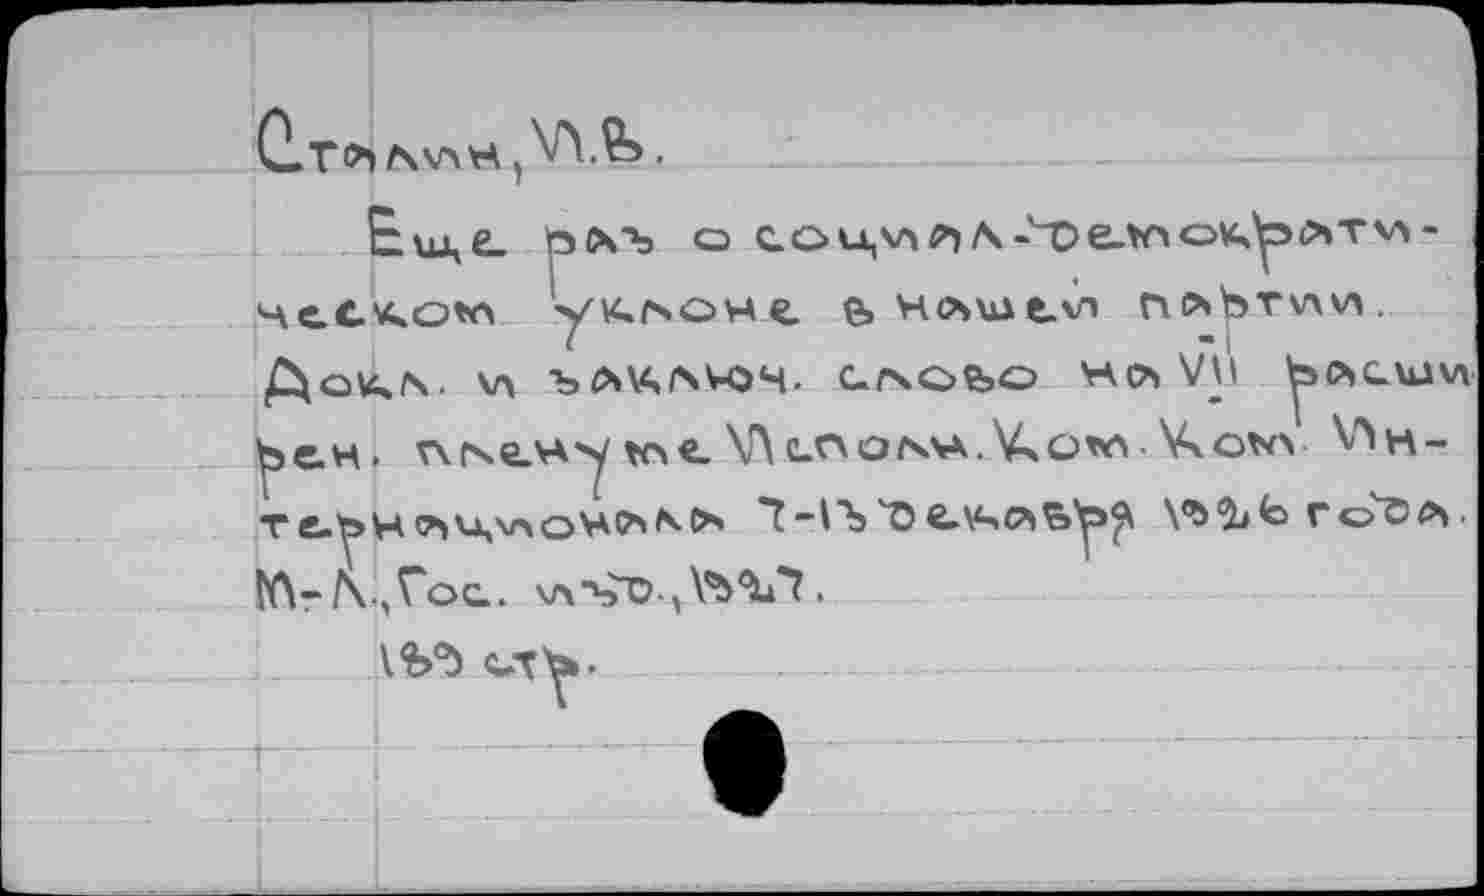 Сталин, И.В.
Еще раз о социал-демократи-
ческом уклоне в нашей партии.
Докл. и заключ. слово на VII расши
рен. пленуме Исполн. Ком. Ком. Ин-
тернационала 7-13 декабря 1926 года.
М-Л., Гос. изд., 1927.
139 стр.